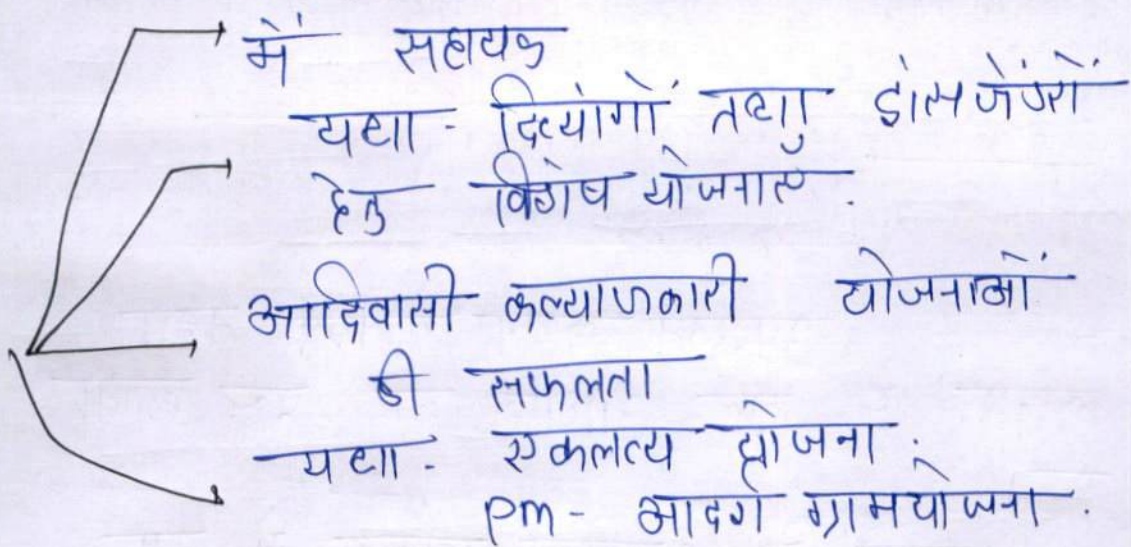 में सहायक
यथा दिव्यांगों तथा ट्रांसजेंडरों
हेतु विशेष योजनाएं.
आदिवासी कल्याणकारी योजनाओं
की सफलता
यथा - एकलव्य योजना.
PM - आदर्श ग्राम योजना.